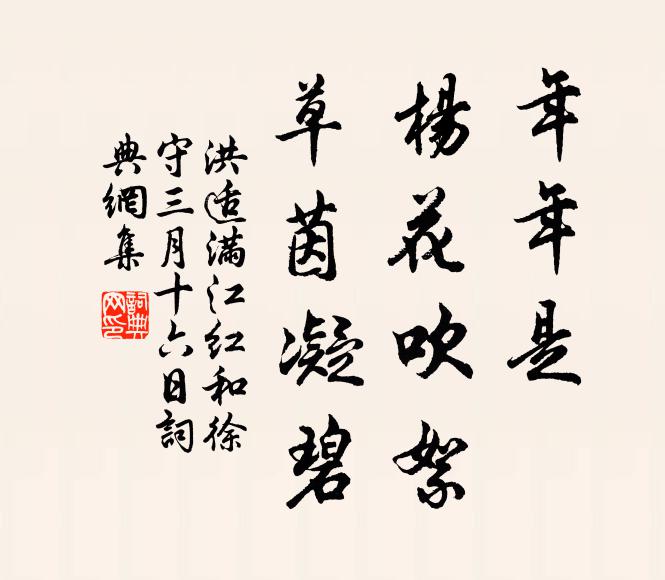 年年是
楊花吹絮
草茵凝碧
洪适滿江红和徐
守三月十六日詞
典網集
詞典
网印